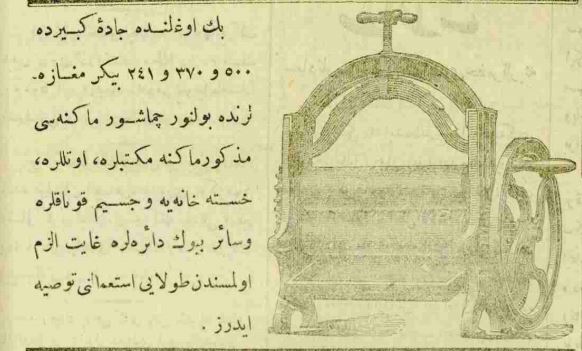 بك اوغلنده جادۀ كبيرده
٥٠٠ و ٣٧٠ و ٢٤١ بيكر مغازه‌
لرنده بولنور چماشور ماكنه‌سی
مذكور ماكنه مكتبلره، اوتللره،
خسته خانه‌يه و جسيم قوناقلره
وسائر بيوك دائره‌لره غايت الزم
اولمسندن طولايی استعمالنی توصيه
ايدرز .